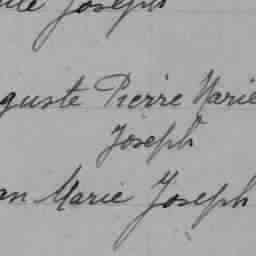 Joseph
guste Pierre Marie
Joseph
an Marie Joseph